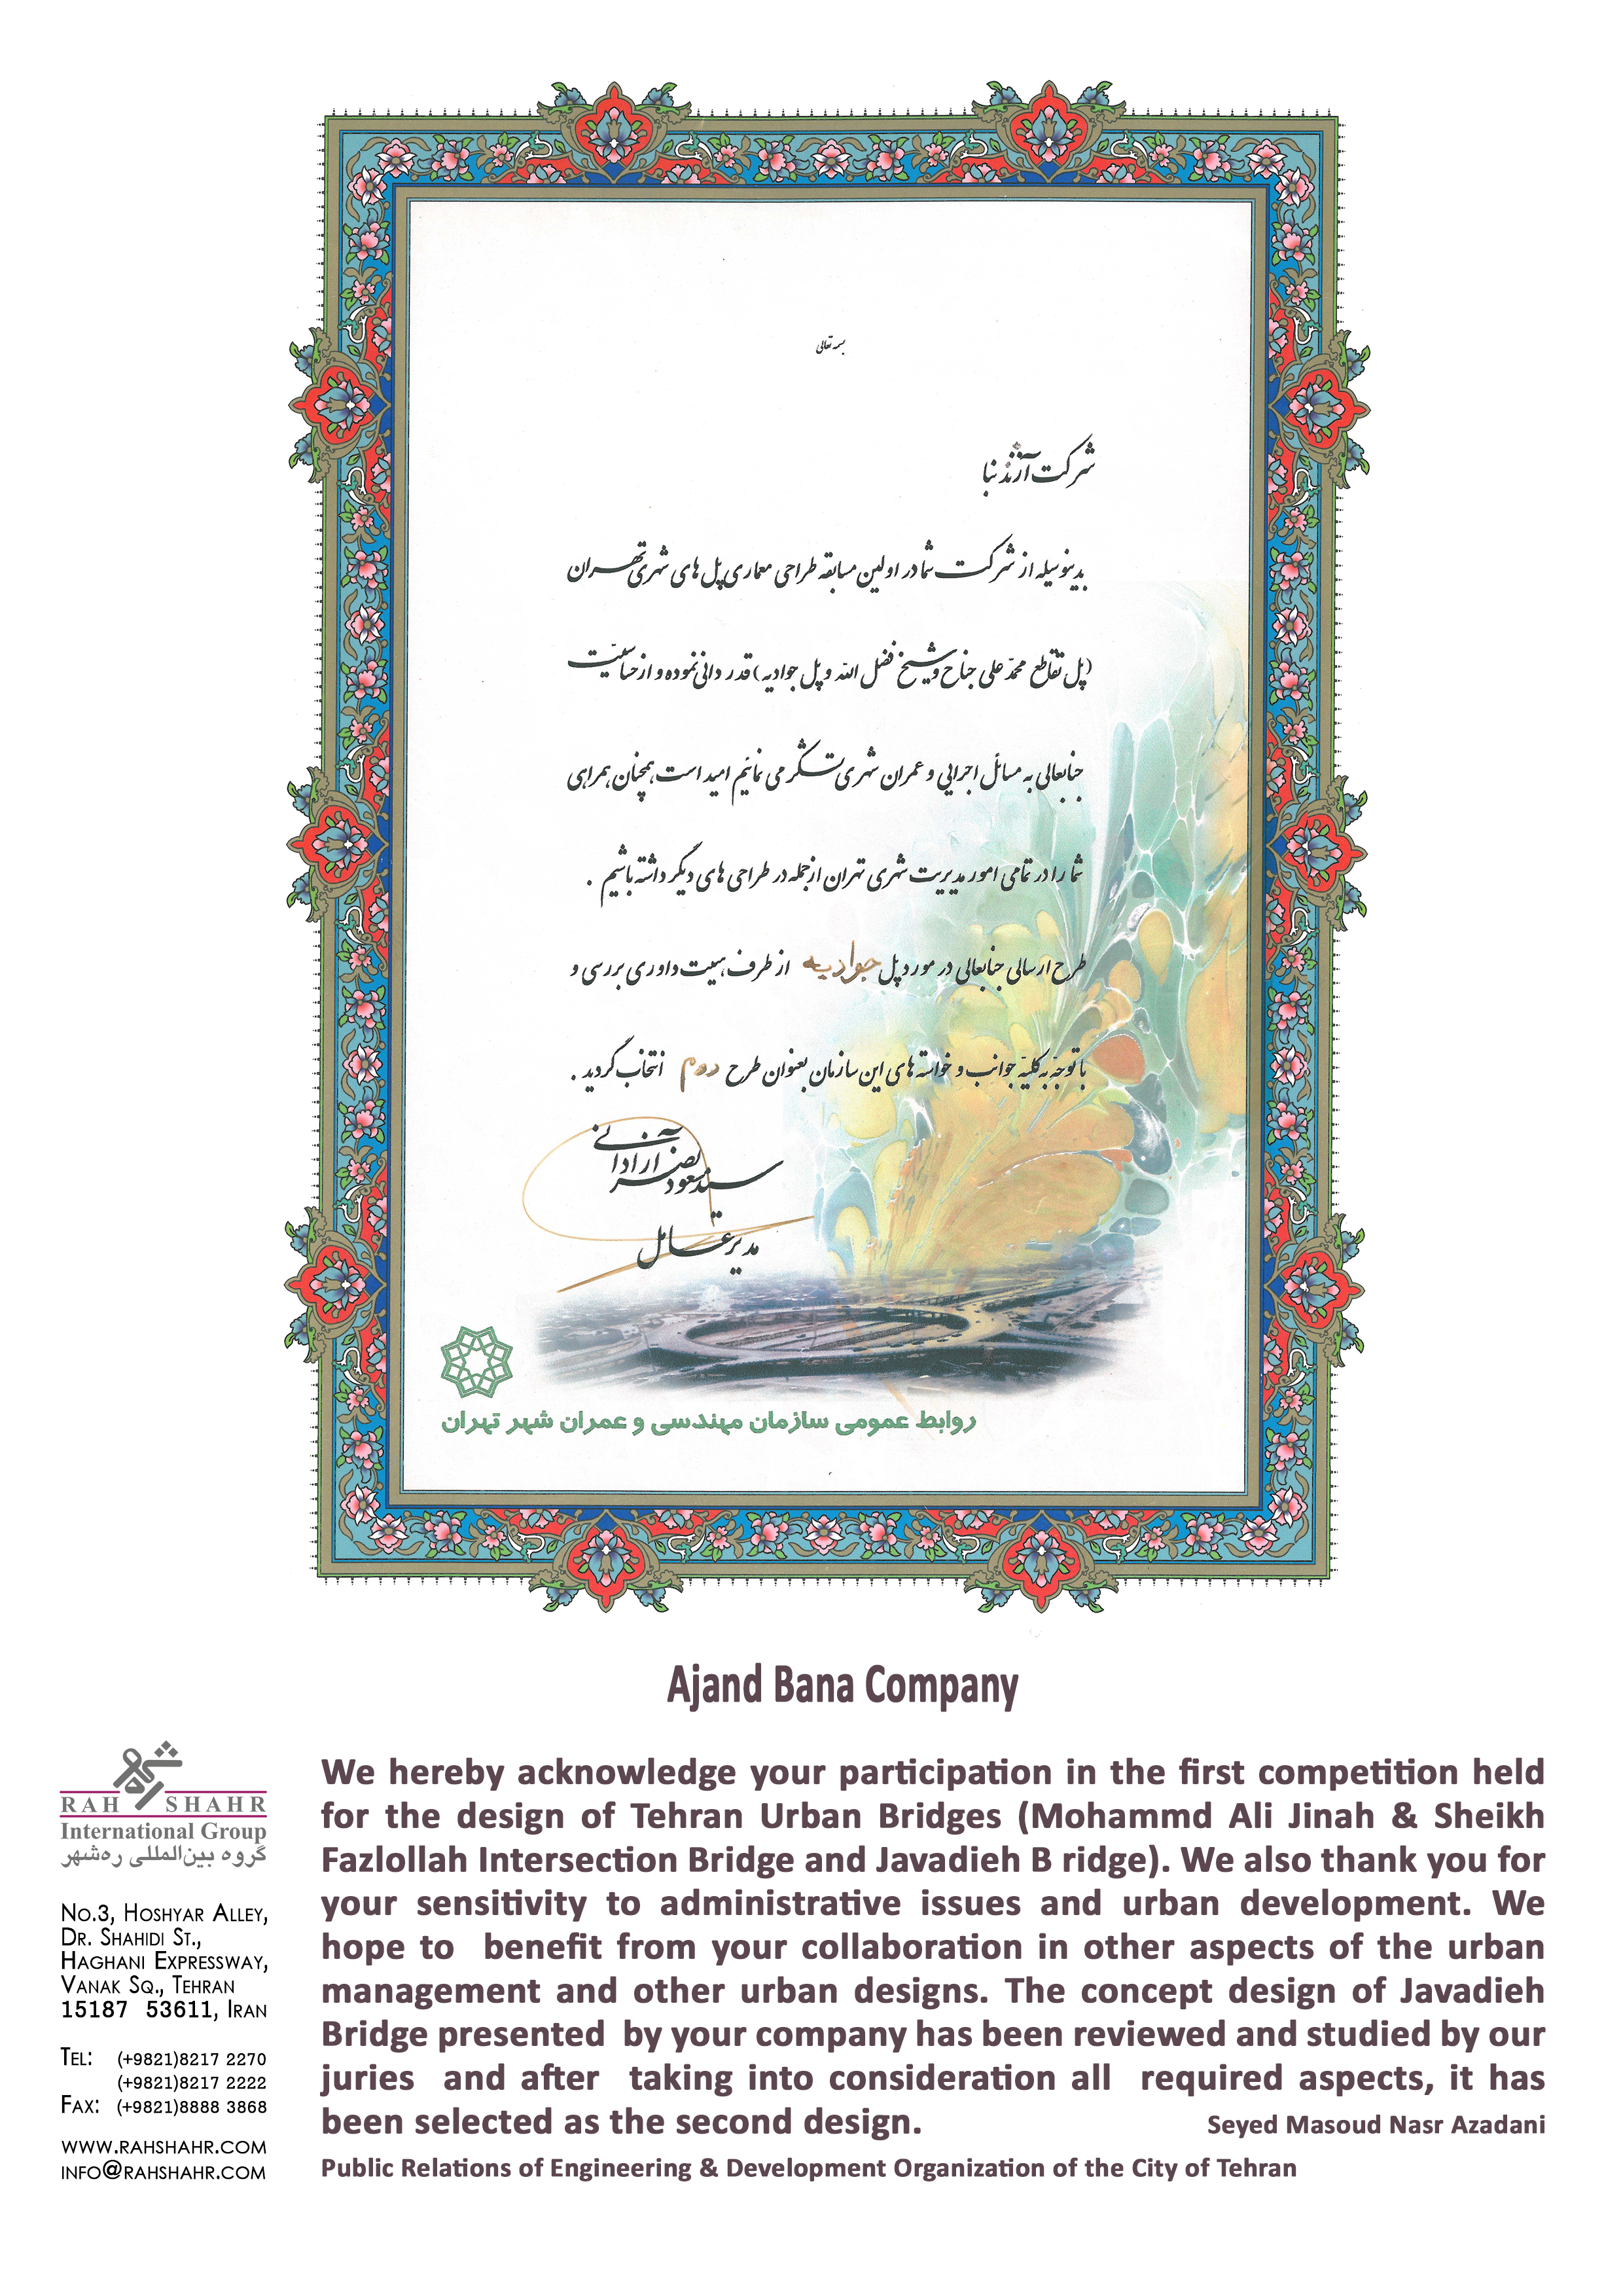 بسمه تعالی
شرکت آژند بنا
بدینوسیله از شرکت شما در اولین مسابقه طراحی معماری پل های شهری تهران
(پل تقاطع محمّد علی جناح و شیخ فضل الله و پل جوادیه) قدردانی نموده و از حساسیّت
جنابعالی به مسائل اجرایی و عمران شهری تشکر می نمائیم امید است همچنان همراهی
شما را در تمامی امور مدیریت شهری تهران از جمله در طراحی های دیگر داشته باشیم .
طرح ارسالی جنابعالی در مورد پل جوادیه از طرف هیئت داوری بررسی و
با توجّه به کلیّه جوانب و خواسته های این سازمان بعنوان طرح دوم انتخاب گردید .
سید مسعود نصر آزادانی
مدیر عامل
روابط عمومی سازمان مهندسی و عمران شهر تهران
Ajand Bana Company
We hereby acknowledge your participation in the first competition held
for the design of Tehran Urban Bridges (Mohammd Ali Jinah & Sheikh
Fazlollah Intersection Bridge and Javadieh B ridge). We also thank you for
your sensitivity to administrative issues and urban development. We
hope to benefit from your collaboration in other aspects of the urban
management and other urban designs. The concept design of Javadieh
Bridge presented by your company has been reviewed and studied by our
juries and after taking into consideration all required aspects, it has
been selected as the second design.
Seyed Masoud Nasr Azadani
Public Relations of Engineering & Development Organization of the City of Tehran
RAH SHAHR
International Group
گروه بین‌المللی ره‌شهر
No.3, Hoshyar Alley,
Dr. Shahidi St.,
Haghani Expressway,
Vanak Sq., Tehran
15187 53611, Iran
Tel: (+9821)8217 2270
(+9821)8217 2222
Fax: (+9821)8888 3868
www.rahshahr.com
info@rahshahr.com